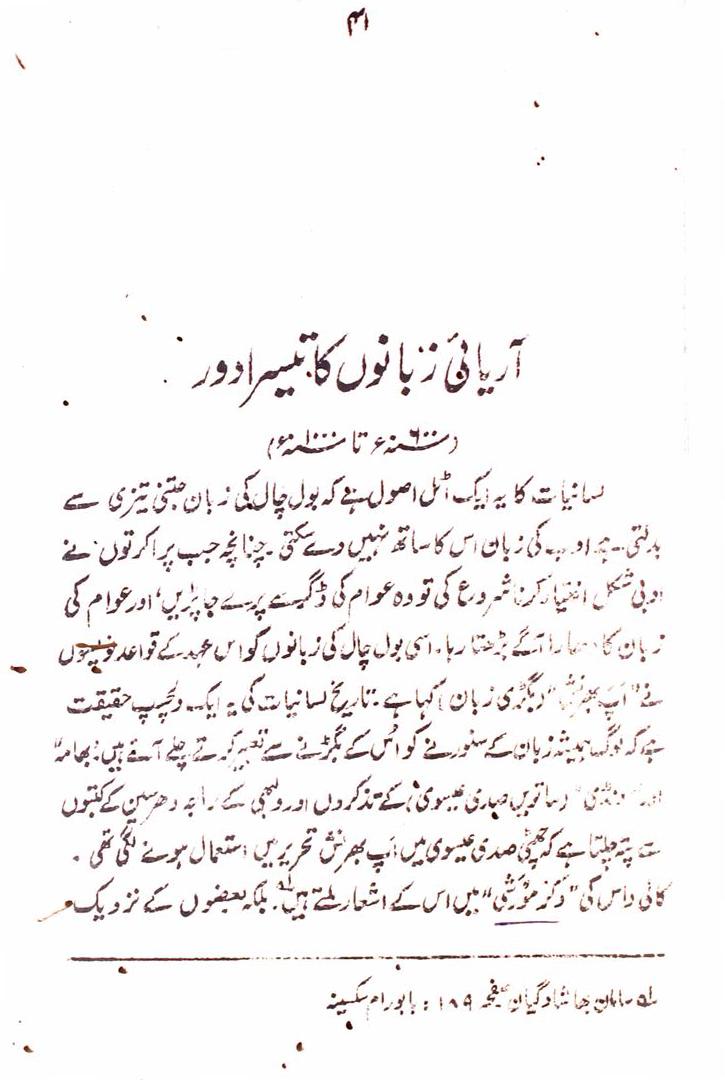 ۴۱
آریائی زبانوں کا تیسرا دور
(۶۰۰ء تا ۱۰۰۰ء)
لسانیات کا یہ ایک اٹل اصول ہے کہ بول چال کی زبان جتنی تیزی سے
بدلتی ہے ادب کی زبان اس کا ساتھ نہیں دے سکتی۔ چنانچہ جب پراکرتوں نے
ادبی شکل اختیار کرنا شروع کی تو وہ عوام کی ڈگر سے پرے جا پڑیں، اور عوام کی
زبان کا دھارا آگے بڑھتا رہا۔ اسی بول چال کی زبانوں کو اس عہد کے قواعد نویسوں
نے "اَپ بھرنش" (بگڑی زبان) کہا ہے۔ تاریخ لسانیات کی یہ ایک دلچسپ حقیقت
ہے کہ لوگ ہمیشہ زبان کے سنورنے کو اُس کے بگڑنے سے تعبیر کرتے چلے آئے ہیں۔ "بھامہ"
اور "ڈنڈی" (ساتویں صدی عیسوی) کے تذکروں اور ولبھی کے راجہ دھرسین کے کتبوں
سے پتہ چلتا ہے کہ چھٹی صدی عیسوی میں اَپ بھرنش تحریر میں استعمال ہونے لگی تھی۔
کالی داس کی "وکرمورشی" میں اس کے اشعار ملتے ہیں۔ لہ بلکہ بعضوں کے نزدیک
لہ سامان بھاشا وگیان صفحہ ۱۸۹ : بابو رام سکسینہ